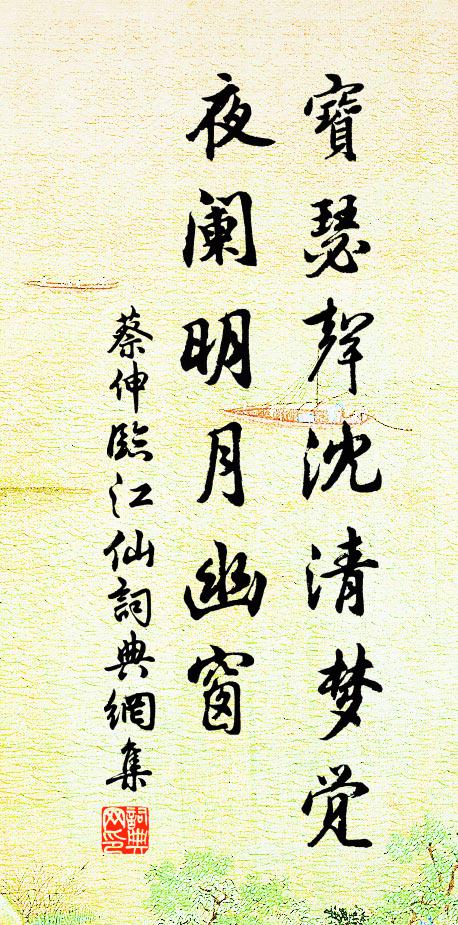 寶瑟聲沈清梦觉
夜阑明月幽窗
蔡伸臨江仙詞典網集
詞典网印